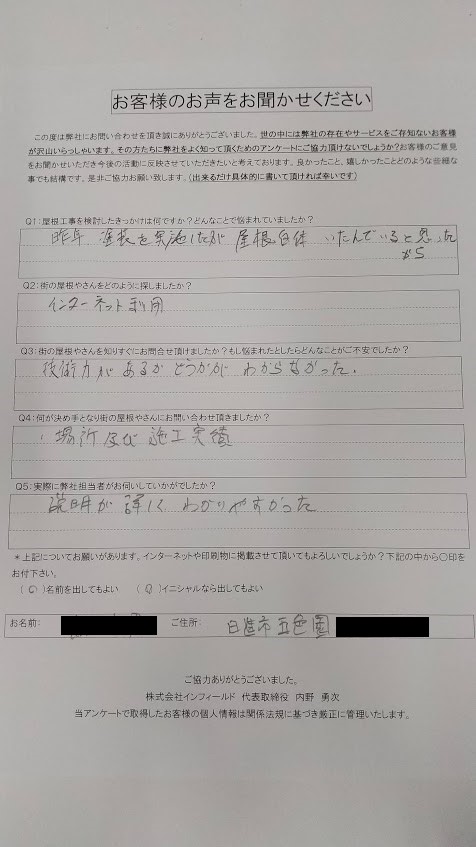 お客様のお声をお聞かせください
この度は弊社にお問い合わせを頂き誠にありがとうございました。世の中には弊社の存在やサービスをご存知ないお客様
が沢山いらっしゃいます。その方たちに弊社をよく知って頂くためのアンケートにご協力頂けないでしょうか?お客様のご意見
をお聞かせいただき今後の活動に反映させていただきたいと考えております。良かったこと、嬉しかったことどのような些細な
事でも結構です。是非ご協力お願い致します。(出来るだけ具体的に書いて頂ければ幸いです)
Q1:屋根工事を検討したきっかけは何ですか?どんなことで悩まれていましたか?
昨年 塗装を実施したが 屋根自体 いたんでいると思った
から
Q2:街の屋根やさんをどのように探しましたか?
インターネット利用
Q3:街の屋根やさんを知りすぐにお問合せ頂けましたか?もし悩まれたとしたらどんなことがご不安でしたか?
技術力があるかどうかが わからなかった。
Q4:何が決め手となり街の屋根やさんにお問い合わせ頂きましたか?
場所及び 施工実績
Q5:実際に弊社担当者がお伺いしていかがでしたか?
説明が 詳しく わかりやすかった
*上記についてお願いがあります。インターネットや印刷物に掲載させて頂いてもよろしいでしょうか?下記の中から〇印を
お付下さい。
(○)名前を出してもよい (○)イニシャルなら出してもよい
お名前: ご住所: 日進市五色園
ご協力ありがとうございました。
株式会社インフィールド 代表取締役 内野 勇次
当アンケートで取得したお客様の個人情報は関係法規に基づき厳正に管理いたします。